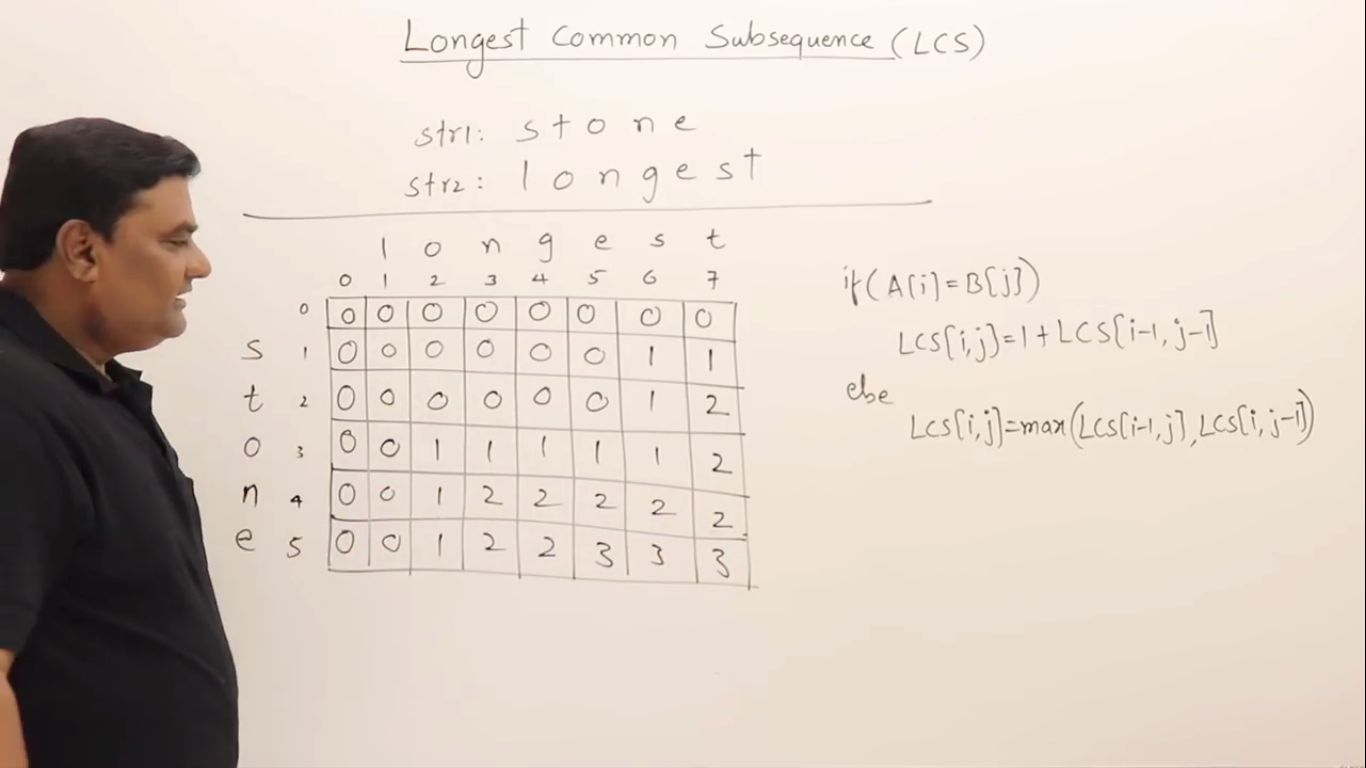 Longest Common Subsequence (LCS)
str1: stone
str2: longest
l o n g e s t
0 1 2 3 4 5 6 7
0 0 0 0 0 0 0 0 0
s 1 0 0 0 0 0 0 1 1
t 2 0 0 0 0 0 0 1 2
o 3 0 0 1 1 1 1 1 2
n 4 0 0 1 2 2 2 2 2
e 5 0 0 1 2 2 3 3 3
if(A[i]=B[j])
LCS[i,j]=1+LCS[i-1,j-1]
else
LCS[i,j]=max(LCS[i-1,j],LCS[i,j-1])